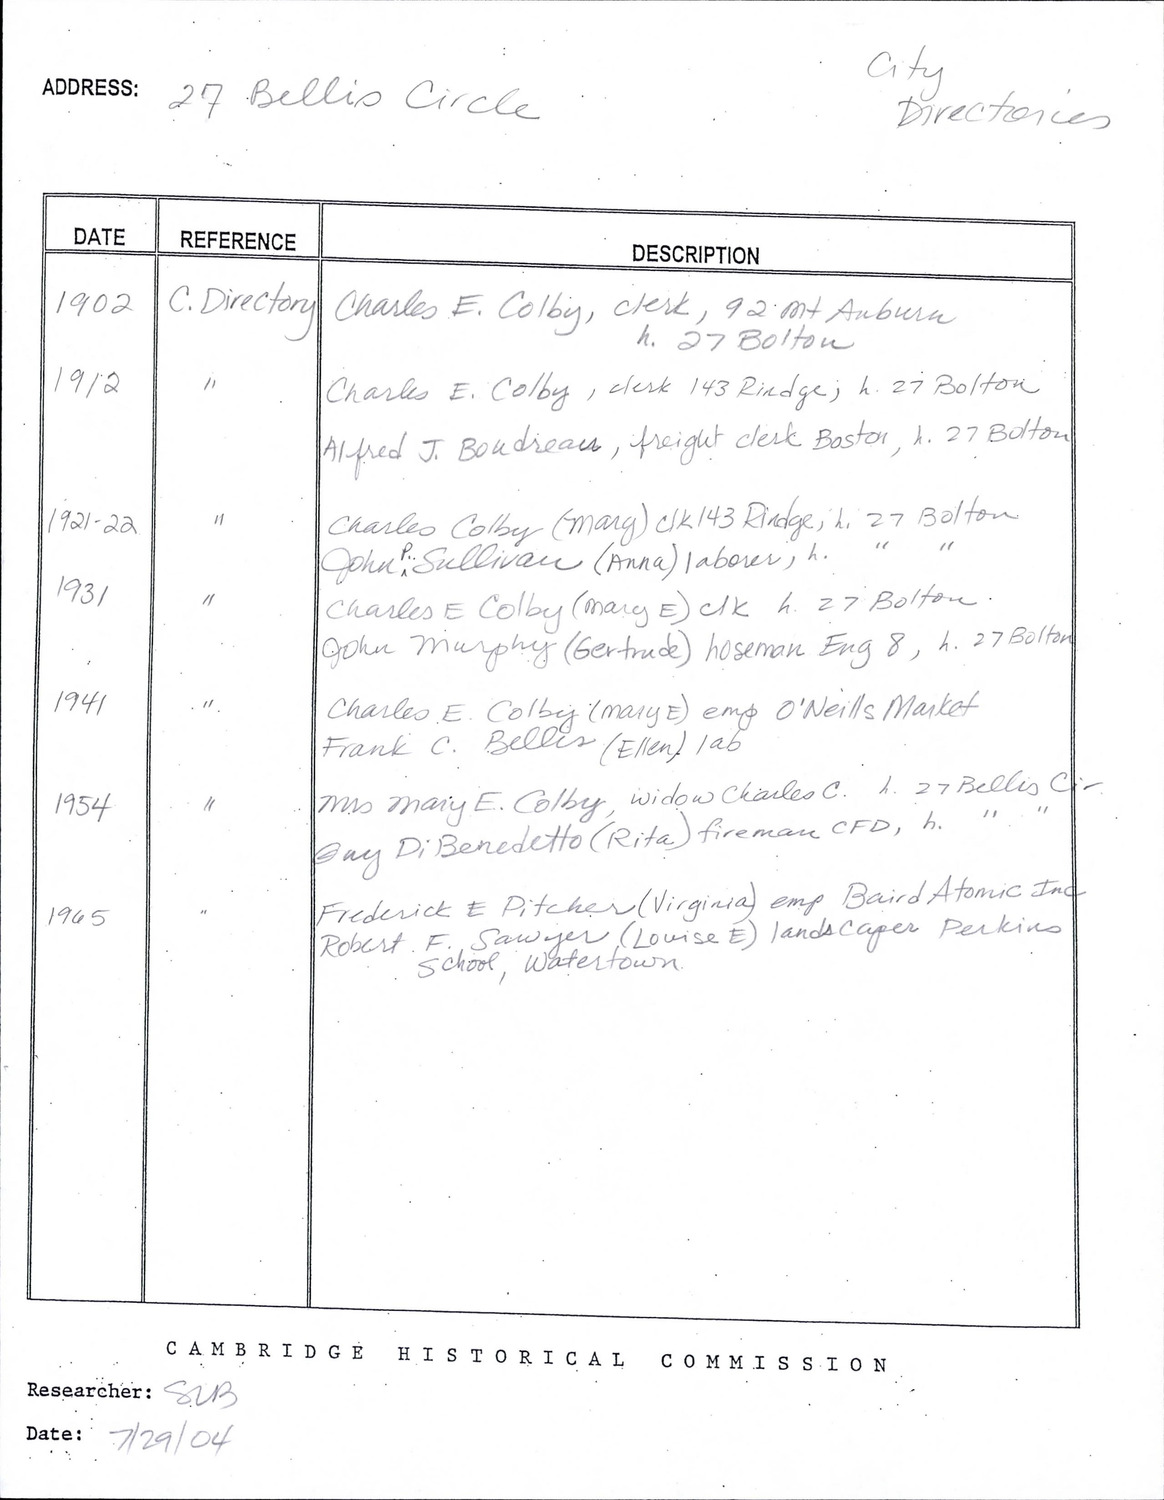 ADDRESS: 27 Bellis Circle
City
Directories
DATE REFERENCE DESCRIPTION
1902 C. Directory Charles E. Colby, clerk, 92 Mt Auburn
h. 27 Bolton
1912 " Charles E. Colby, clerk 143 Rindge; h. 27 Bolton
Alfred J. Boudreau, freight clerk Boston, h. 27 Bolton
1921-22 " Charles Colby (Mary) clk 143 Rindge; h. 27 Bolton
John P. Sullivan (Anna) laborer, h. " "
1931 " Charles E Colby (Mary E) clk h. 27 Bolton.
John Murphy (Gertrude) hoseman Eng 8, h. 27 Bolton
1941 " Charles E. Colby (Mary E) emp O'Neills Market
Frank C. Bellis (Ellen) lab
1954 " Mrs Mary E. Colby, widow Charles C. h. 27 Bellis Cir
Guy DiBenedetto (Rita) fireman CFD, h. " "
1965 " Frederick E Pitcher (Virginia) emp Baird Atomic Inc
Robert F. Sawyer (Louise E) landscaper Perkins
School, Watertown.
CAMBRIDGE HISTORICAL COMMISSION
Researcher: SUB
Date: 7/29/04